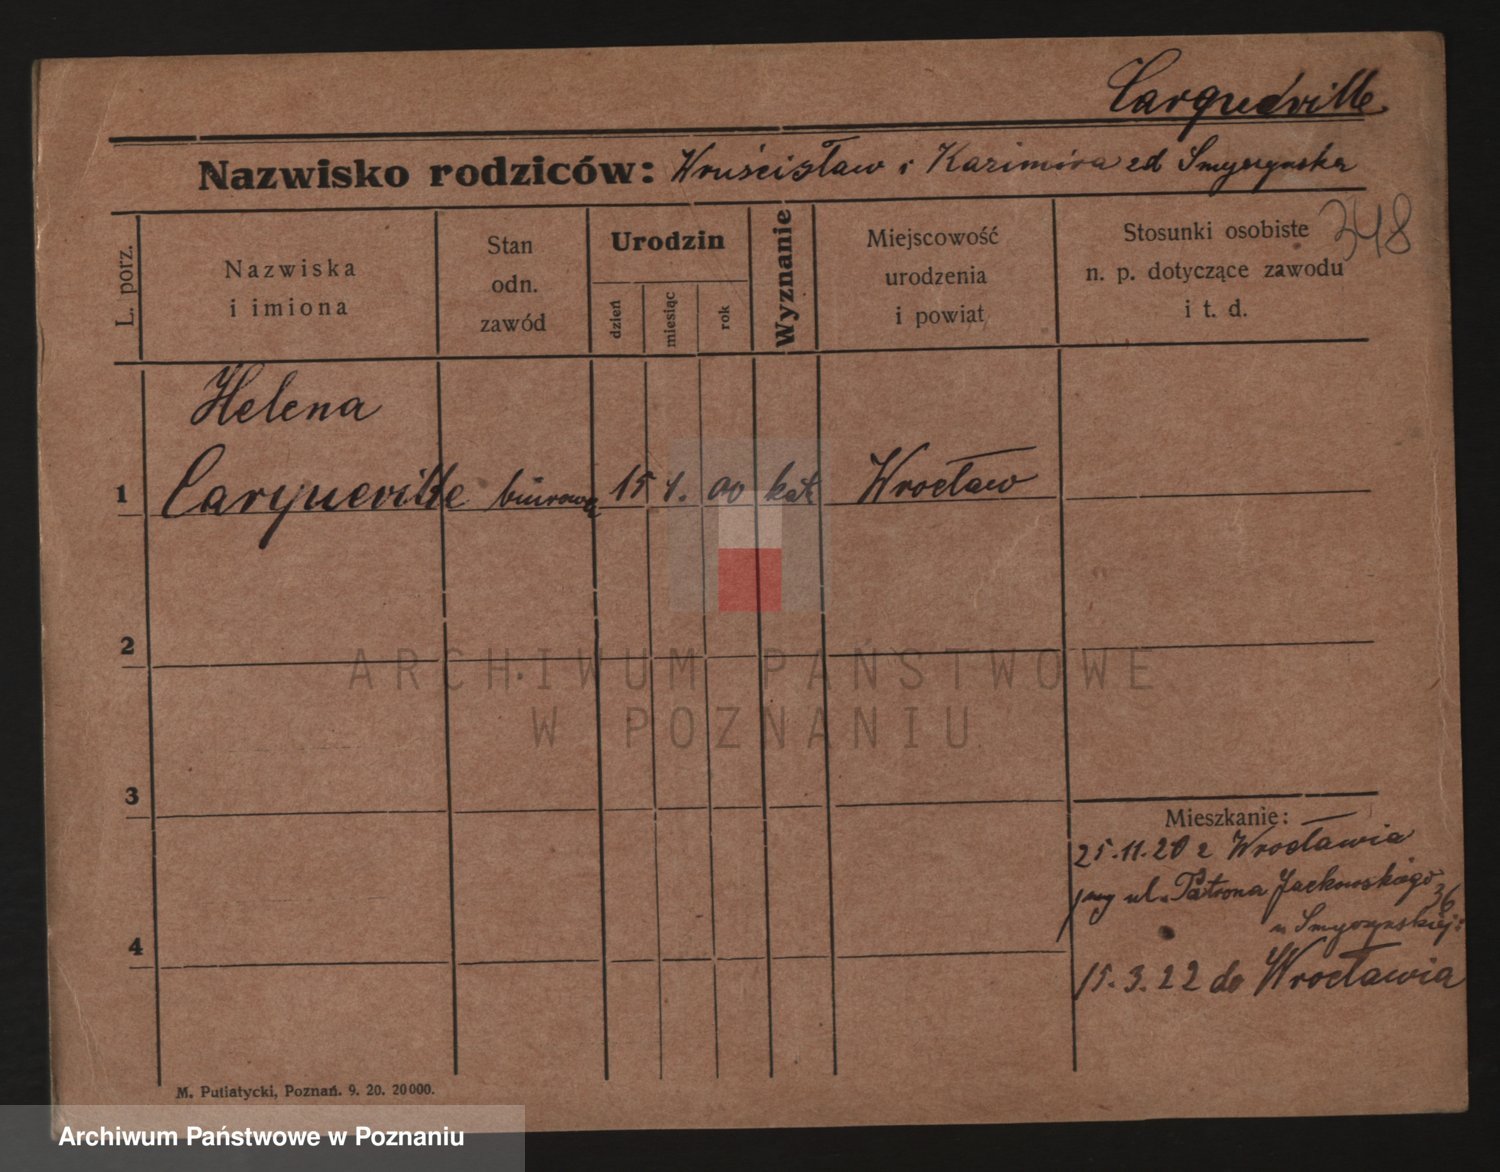 Carqueville
Nazwisko rodziców: Kazimira
348
L. porz.
Nazwiska
i imiona
Stan
odn.
zawód
Urodzin
dzień
miesiąc
rok
Wyznanie
Miejscowość
urodzenia
i powiat
Stosunki osobiste
n. p. dotyczące zawodu
i t. d.
Helena
1 Carqueville biurowa 15 00 kat Wrocław
2
3
4
Mieszkanie:
25.11.20 z Wrocławia
ul. Patrona Jackowskiego 36
15.3.22 do Wrocławia
ARCHIWUM PAŃSTWOWE
W POZNANIU
M. Putiatycki, Poznań. 9. 20. 20000.
Archiwum Państwowe w Poznaniu